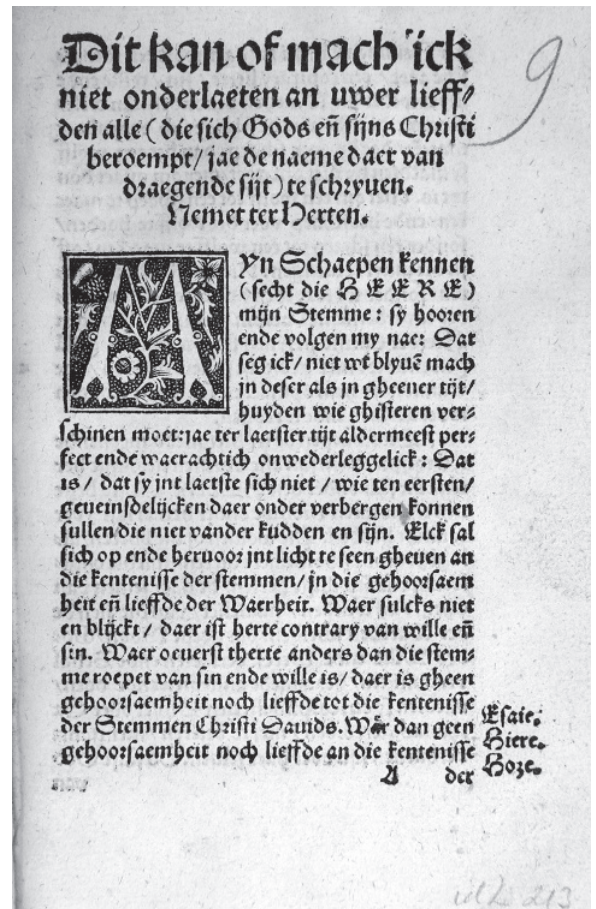 Dit kan of mach ick
niet onderlaeten an uwer lieff/
den alle (die sich Gods eñ sijns Christi
beroempt/ jae de naeme daer van
draegende sijt) te schryven.
Nemet ter Herten.
9
MYn Schaepen kennen
(secht die HEERE)
mijn Stemme: sy hooren
ende volgen my nae: Dat
seg ick/ niet wt blyuē mach
jn deser als jn gheener tijt/
huyden wie ghisteren ver-
schinen moet: jae ter laetster tijt aldermeest per-
fect ende waerachtich onwederleggelick: Dat
is / dat sy jnt laetste sich niet / wie ten eersten/
geueinsdelijcken daer onder verbergen konnen
sullen die niet vander kudden en sijn. Elck sal
sich op ende heruoor jnt licht te seen gheuen an
die kentenisse der stemmen/ jn die gehoorsaem
heit eñ lieffde der Waerheit. Waer sulcks niet
en blijckt / daer ist herte contrary van wille eñ
sin. Waer oeuerst therte anders dan die stem-
me roepet van sin ende wille is/ daer is gheen
gehoorsaemheit noch lieffde tot die kentenisse
der Stemmen Christi Dauids. Wār dan geen
gehoorsaemheit noch lieffde an die kentenisse
Esaie.
Hiere.
Hoze.
A der
213